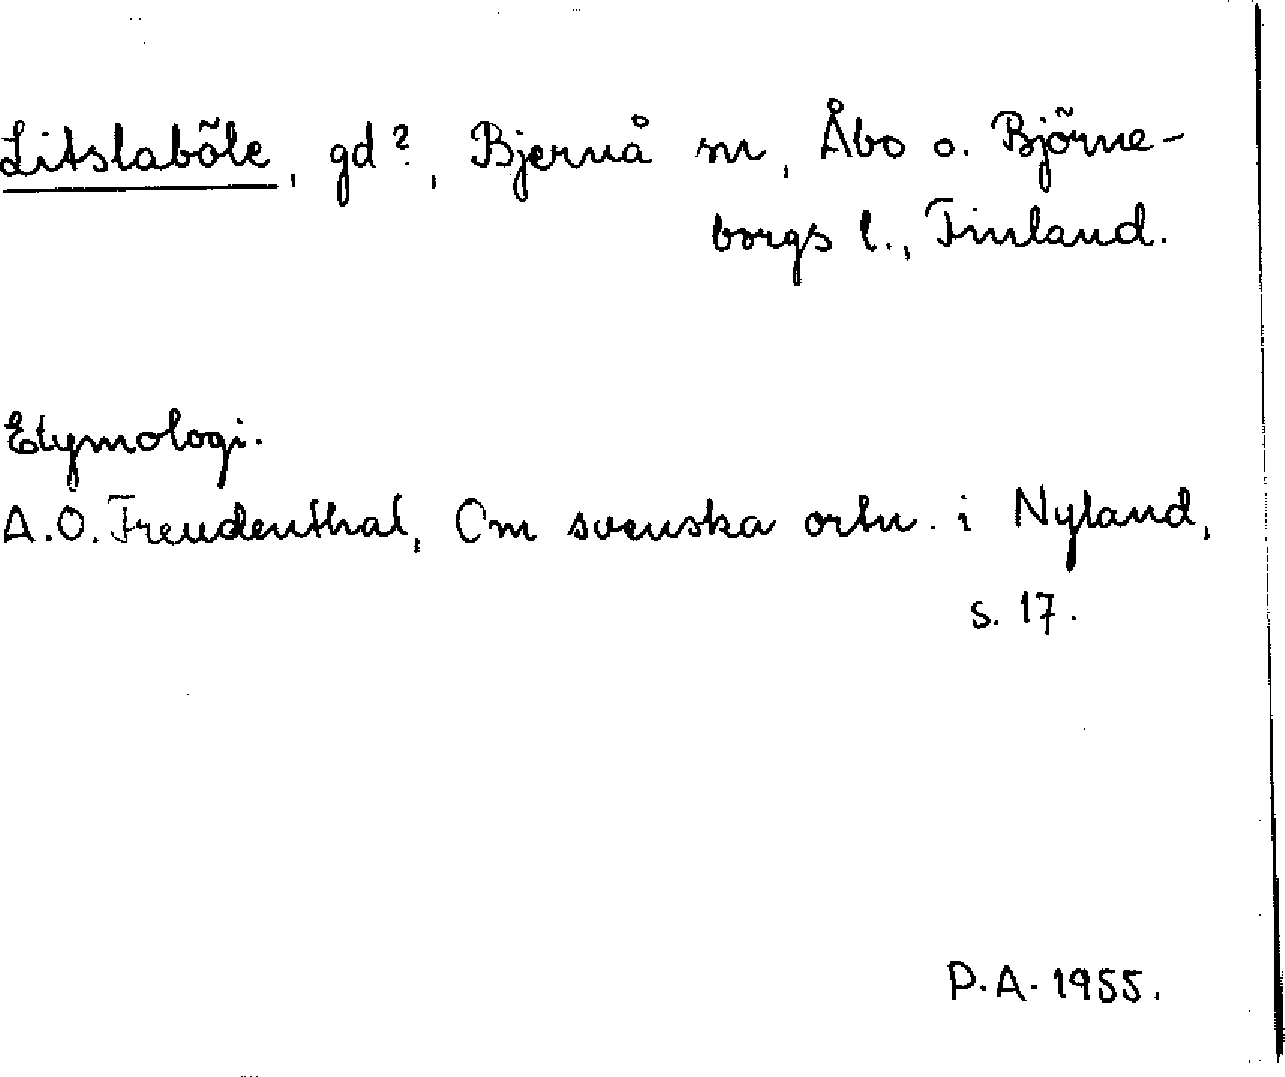 Litslaböle, gd?, Bjernå sn, Åbo o. Björne-
borgs l., Finland.
Etymologi.
A.O. Freudenthal, Om svenska ortn. i Nyland,
s. 17.
P.A. 1955.